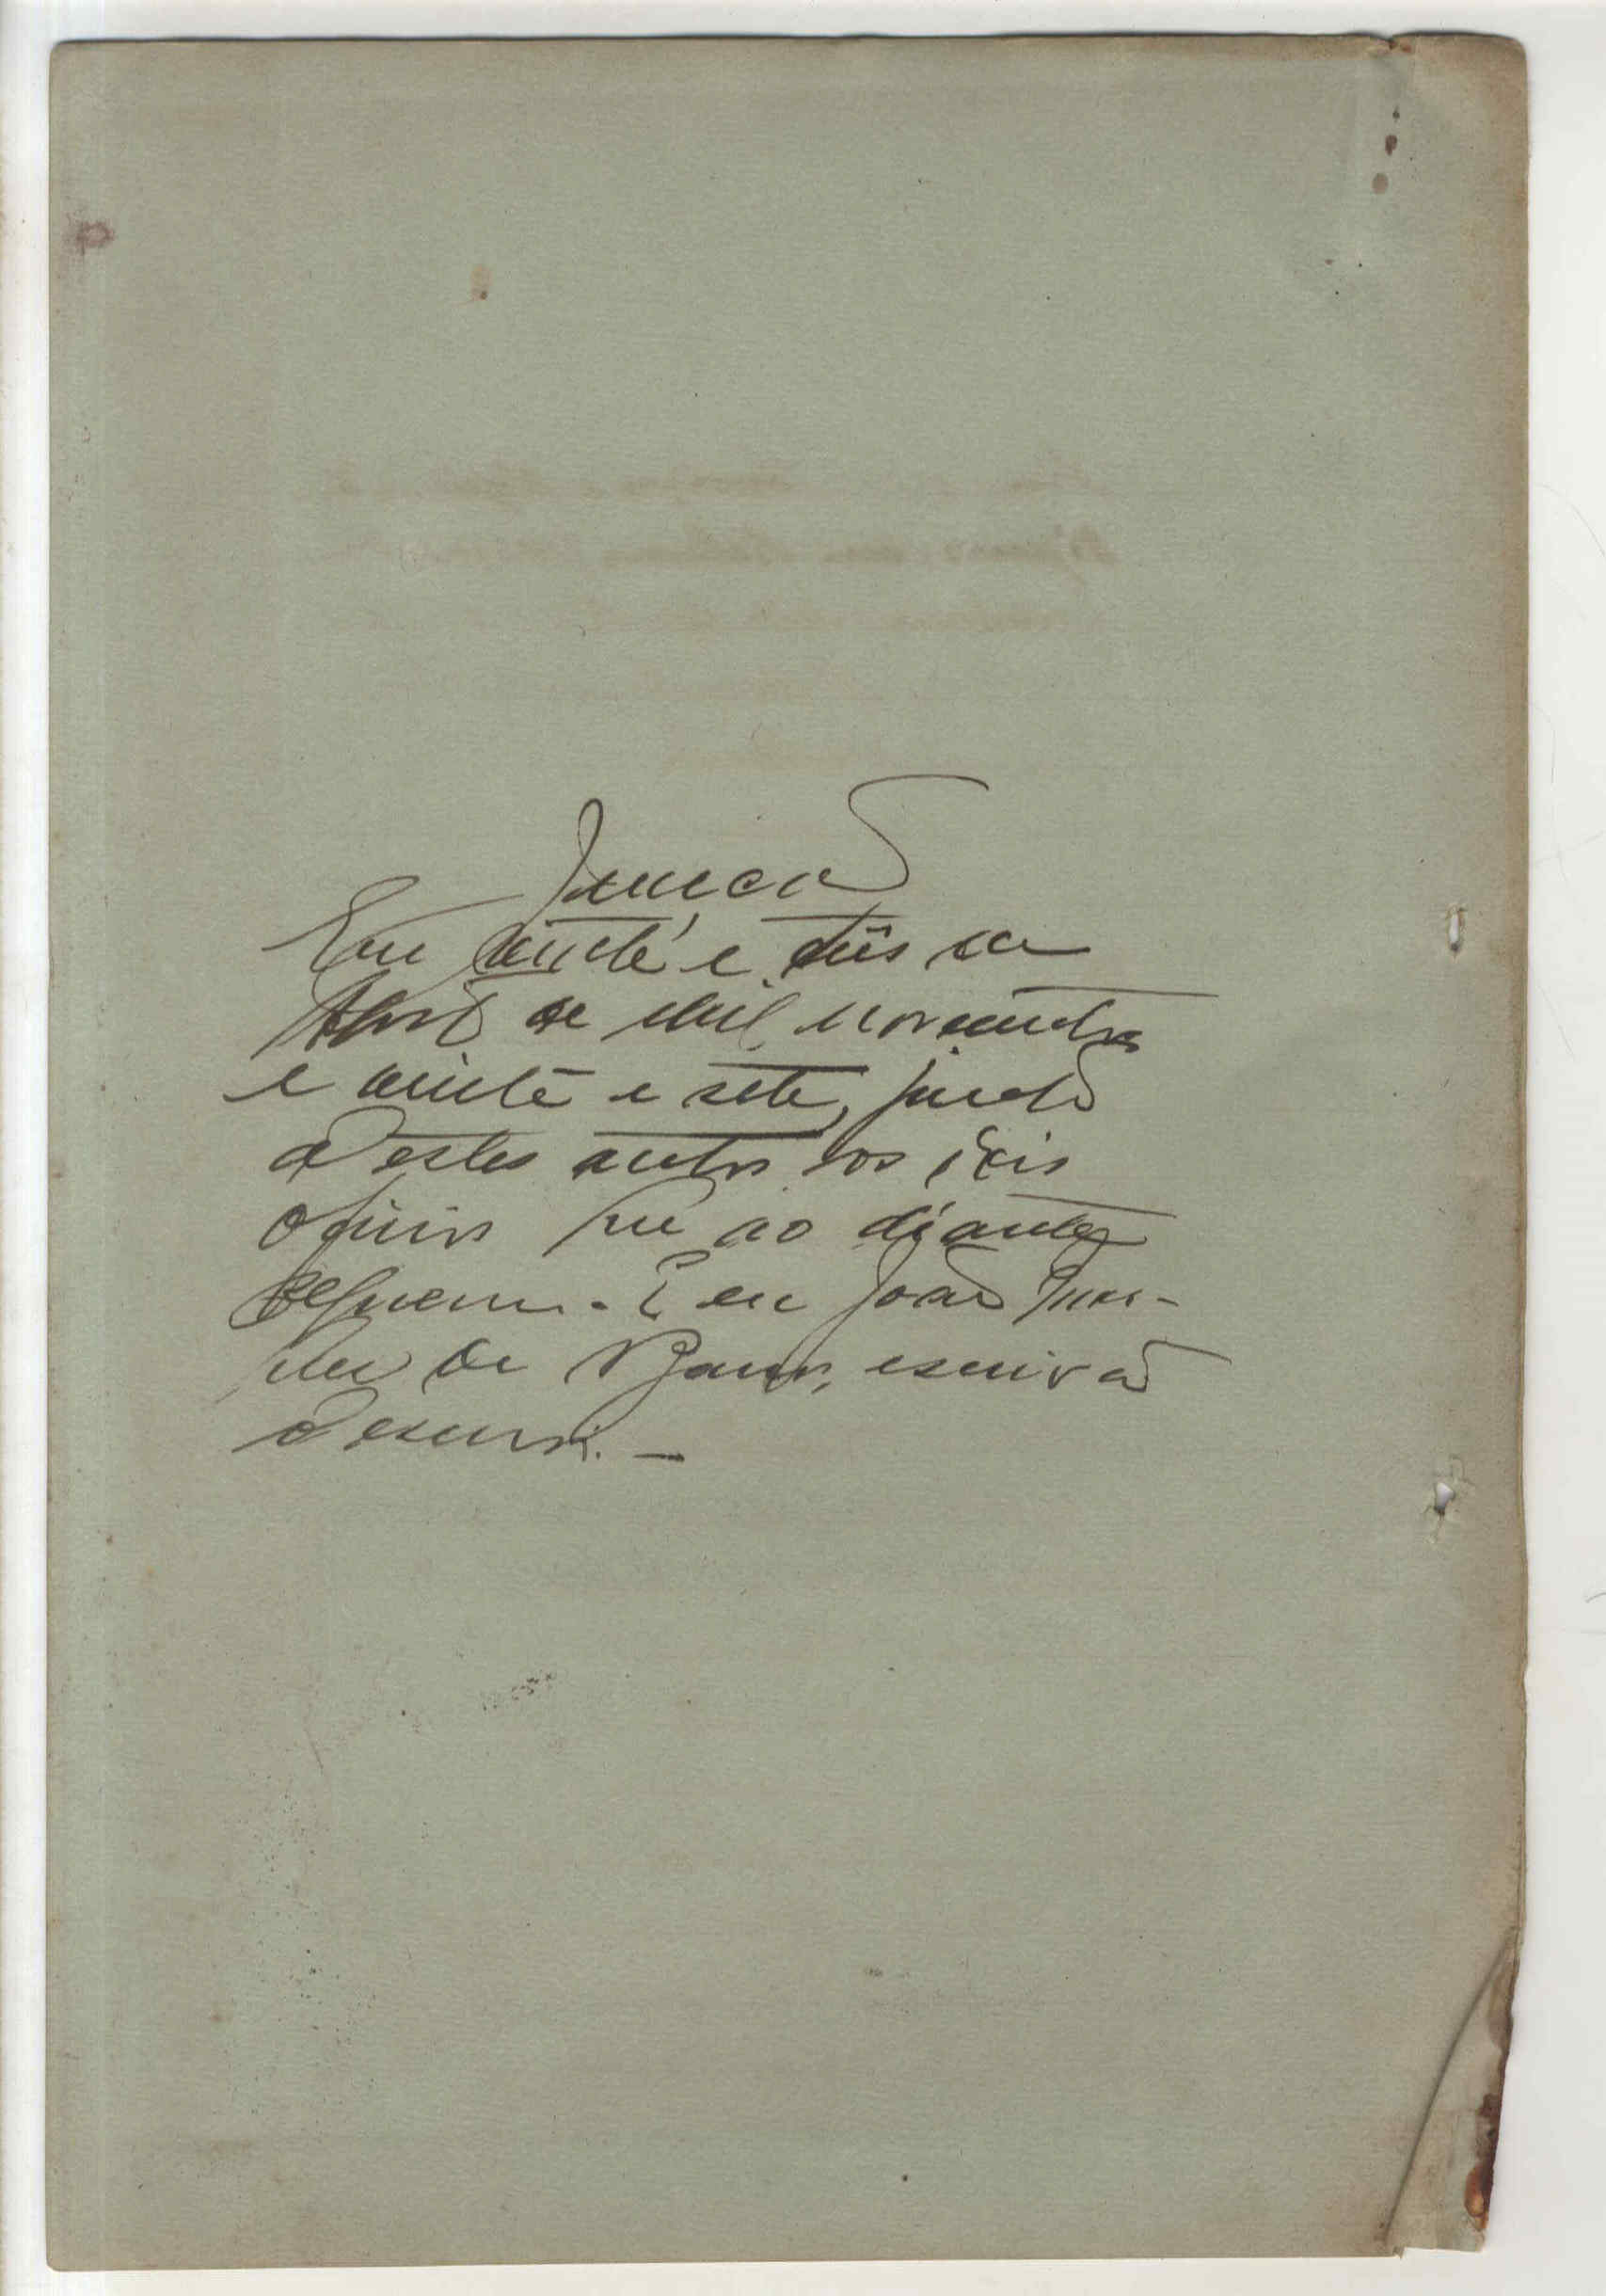 Juncção
Em vinte e dois de
Abril de mil novecentos
e vinte e sete, junto
a estes autos os dois
officios que ao diante
seguem. E eu João
de Barros, escrivão
o escrevi. —